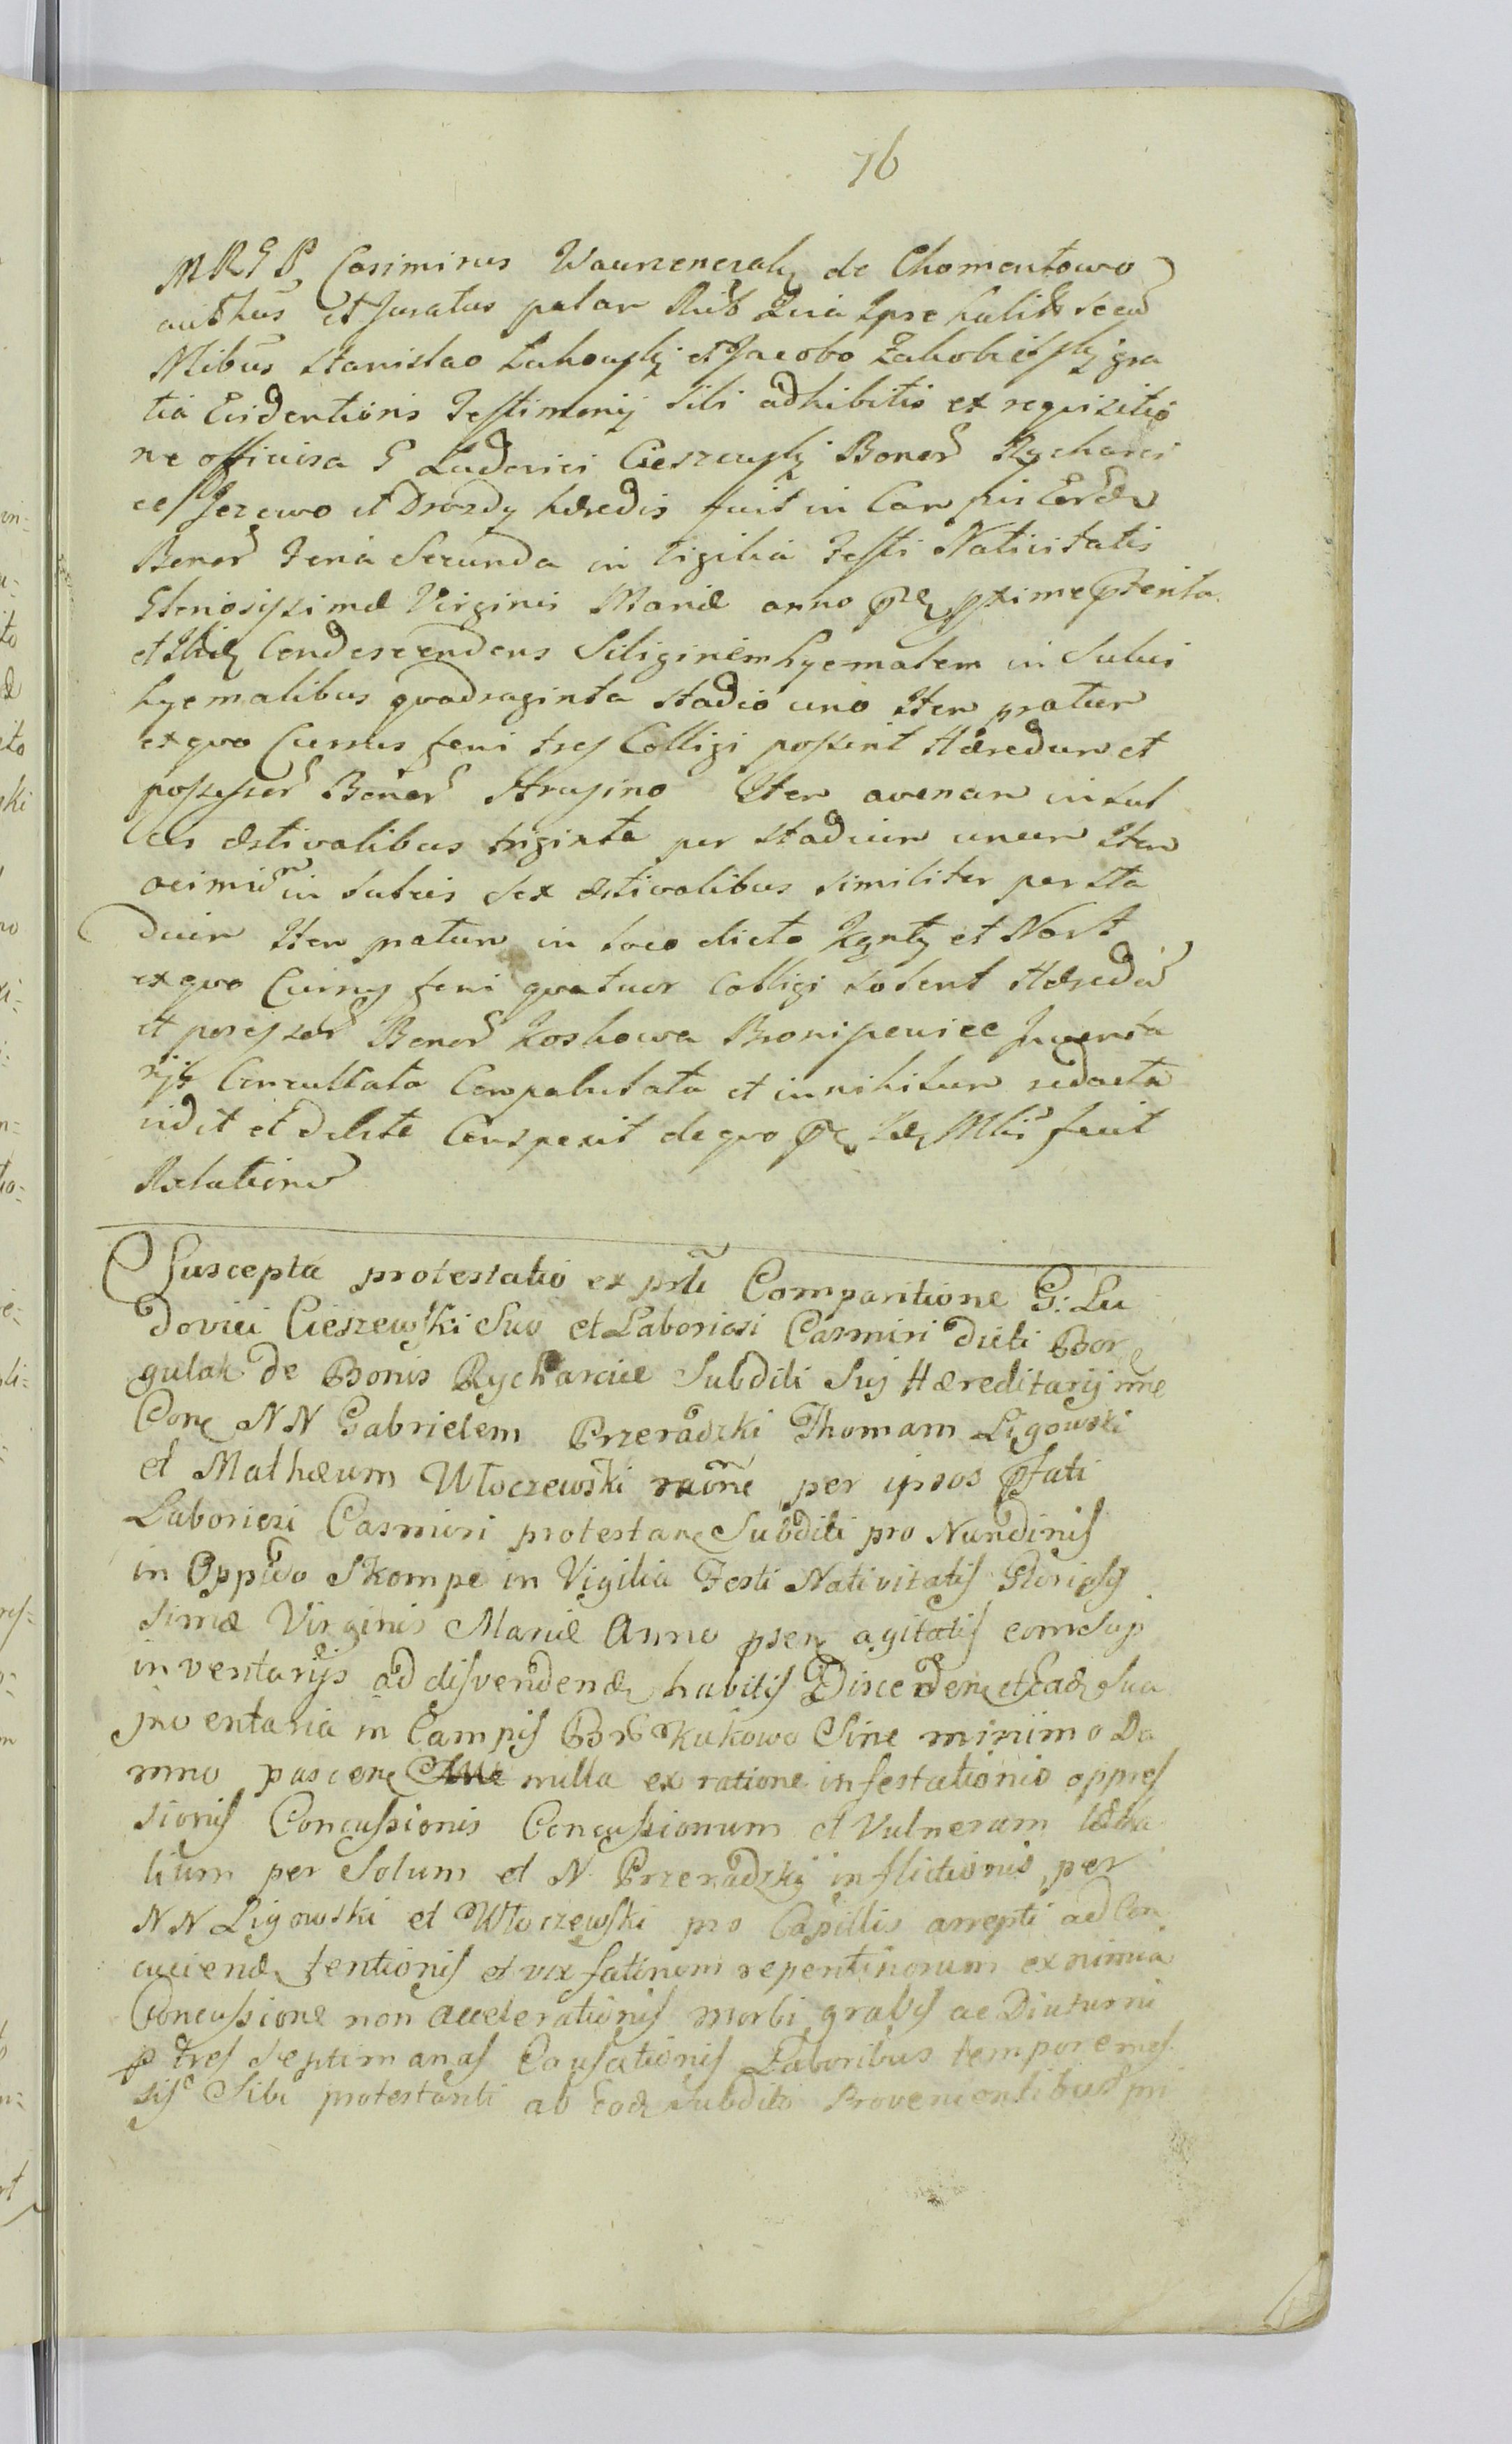 76
MRGP Casimirus Wawrzenczak de Chomentowo
authus et Juratus palam Quia Ipse habitis secu
Nlibus Stanislao Lukowski et Jacobo Zakobielski gra
tia Evidentioris Testimonij sibi adhibitis ex requisitio
ne officiosa G Ludovici Cieszewski Bonor Rycharci
ce Jezewo et Drozdy hæredis fuit in Campis Eordem
Bonor Feria Secunda in Vigilia Festi Nativitatis
Gloriosissimæ Virginis Mariæ anno pxime pterita
et Ibidem Condescendens Siliginem hyemalem in Sulcis
hyemalibus quadraginta stadio uno Item pratum
ex quo Currus feni tres Colligi possent Hæredum et
possessor Bonor Strusino Item avenam in sul
cis æstivalibus triginta per stadium unum Item
in sulcis sex æstivalibus similiter per sta
dium Item pratum in loco dicto et
ex quo Currus feni quatuor colligi solent Hæredu
et possessor Bonor Koskowa Bronipeuice Inventa
rijs Conculcata Compalutata et in nihilum redacta
vidit et Conspexit de quo fecit
Relationem
Suscepta protestatio ex prti Comparitione G: Lu
dovici Cieszewski Suo et Laboriosi Casmiri dicti Bor
gulak de Bonis Rycharcice Subditi Suj Hæreditarij nne
Con NN Gabrielem Przeradzki Thomam Ligowski
et Mathæum Włoczewski raõne per ipsos pfati
Laboriosi Casmiri protestan Subditi pro Nundinis
in Oppido Skompe in Vigilia Festi Nativitatis Gloriosis
simæ Virginis Mariæ Anno psen agitatis cum Suis
inventarijs ad disvendend habitis Disceden et Ead Sua
Inventaria in Campis Br Kukowo Sine minimo Da
mno pascen nulla ex ratione infestationis oppres
sionis Concussionis Concussionum et Vulnerum letha
lium per Solum et N Przeradzki inflictionis per
NN Ligowski et Włoczewski pro Capillis arrepti ad Con
cuciend tentionis et vix fatinom repentinorum ex nimia
Concussione non accelerationis morbi gravis ac Diuturni
p tres Septimanas Causationis Laboribus tempore mes
sis Sibi protestanti ab Eod Subdito Provenientibus pri